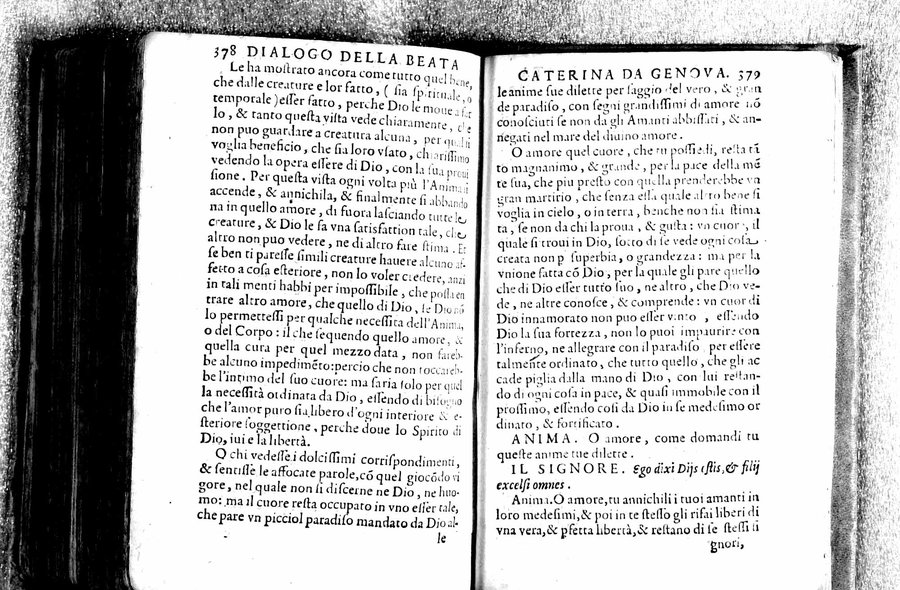 378 DIALOGO DELLA BEATA
Le ha mostrato ancora come tutto quel bene,
che dalle creature e lor fatto, ( sia spirituale, o
temporale ) esser fatto, perche Dio le moue a far
lo, & tanto questa vista vede chiaramente, che
non puo guardare a creatura alcuna, per qual si
voglia beneficio, che sia loro vsato, chiarissimo
vedendo la opera essere di Dio, con la sua proui
sione. Per questa vista ogni volta più l'Anima si
accende, & annichila, & finalmente si abbando
na in quello amore, di fuora lasciando tutte le
creature, & Dio le fa vna satisfattion tale, che
altro non puo vedere, ne di altro fare stima. Et
se ben ti paresse simili creature hauere alcuno af-
fetto a cosa esteriore, non lo voler credere, anzi
in tali menti habbi per impossibile, che possa en
trare altro amore, che quello di Dio, se Dio nō
lo permettessi per qualche necessita dell'Anima,
o del Corpo: il che sequendo quello amore, &
quella cura per quel mezzo data, non fareb-
be alcuno impedimēto: percio che non toccareb-
be l'intimo del suo cuore: ma faria solo per quel
la necessità ordinata da Dio, essendo di bisogno
che l'amor puro sia libero d'ogni interiore & e-
steriore soggettione, perche doue lo Spirito di
Dio, iui e la libertà.
O chi vedesse i dolcissimi corrispondimenti,
& sentisse le affocate parole, cō quel giocōdo vi
gore, nel quale non si discerne ne Dio, ne huo-
mo: ma il cuore resta occupato in vno esser tale,
che pare vn picciol paradiso mandato da Dio al-
le
CATERINA DA GENOVA. 379
le anime sue dilette per saggio del vero, & gran
de paradiso, con segni grandissimi di amore nō
conosciuti se non da gli Amanti abbissati, & an-
negati nel mare del diuino amore.
O amore quel cuore, che tu possiedi, resta tā
to magnanimo, & grande, per la pace della mē
te sua, che piu presto con quella prenderebbe vn
gran martirio, che senza essa quale altro bene si
voglia in cielo, o in terra, benche non sia stima
ta, se non da chi la proua, & gusta: vn cuore, il
quale si troui in Dio, sotto di se vede ogni cosa
creata non p superbia, o grandezza: ma per la
vnione fatta cō Dio, per la quale gli pare quello
che di Dio esser tutto suo, ne altro, che Dio ve-
de, ne altre conosce, & comprende: vn cuor di
Dio innamorato non puo esser vinto, essendo
Dio la sua fortezza, non lo puoi impaurire con
l'inferno, ne allegrare con il paradiso per essere
talmente ordinato, che tutto quello, che gli ac
cade piglia dalla mano di Dio, con lui restan-
do di ogni cosa in pace, & quasi immobile con il
prossimo, essendo cosi da Dio in se medesimo or
dinato, & fortificato.
ANIMA. O amore, come domandi tu
queste anime tue dilette.
IL SIGNORE. Ego dixi Dijs estis, & filij
excelsi omnes.
Anima. O amore, tu annichili i tuoi amanti in
loro medesimi, & poi in te stesso gli rifai liberi di
vna vera, & pfetta libertà, & restano di se stessi si
gnori,